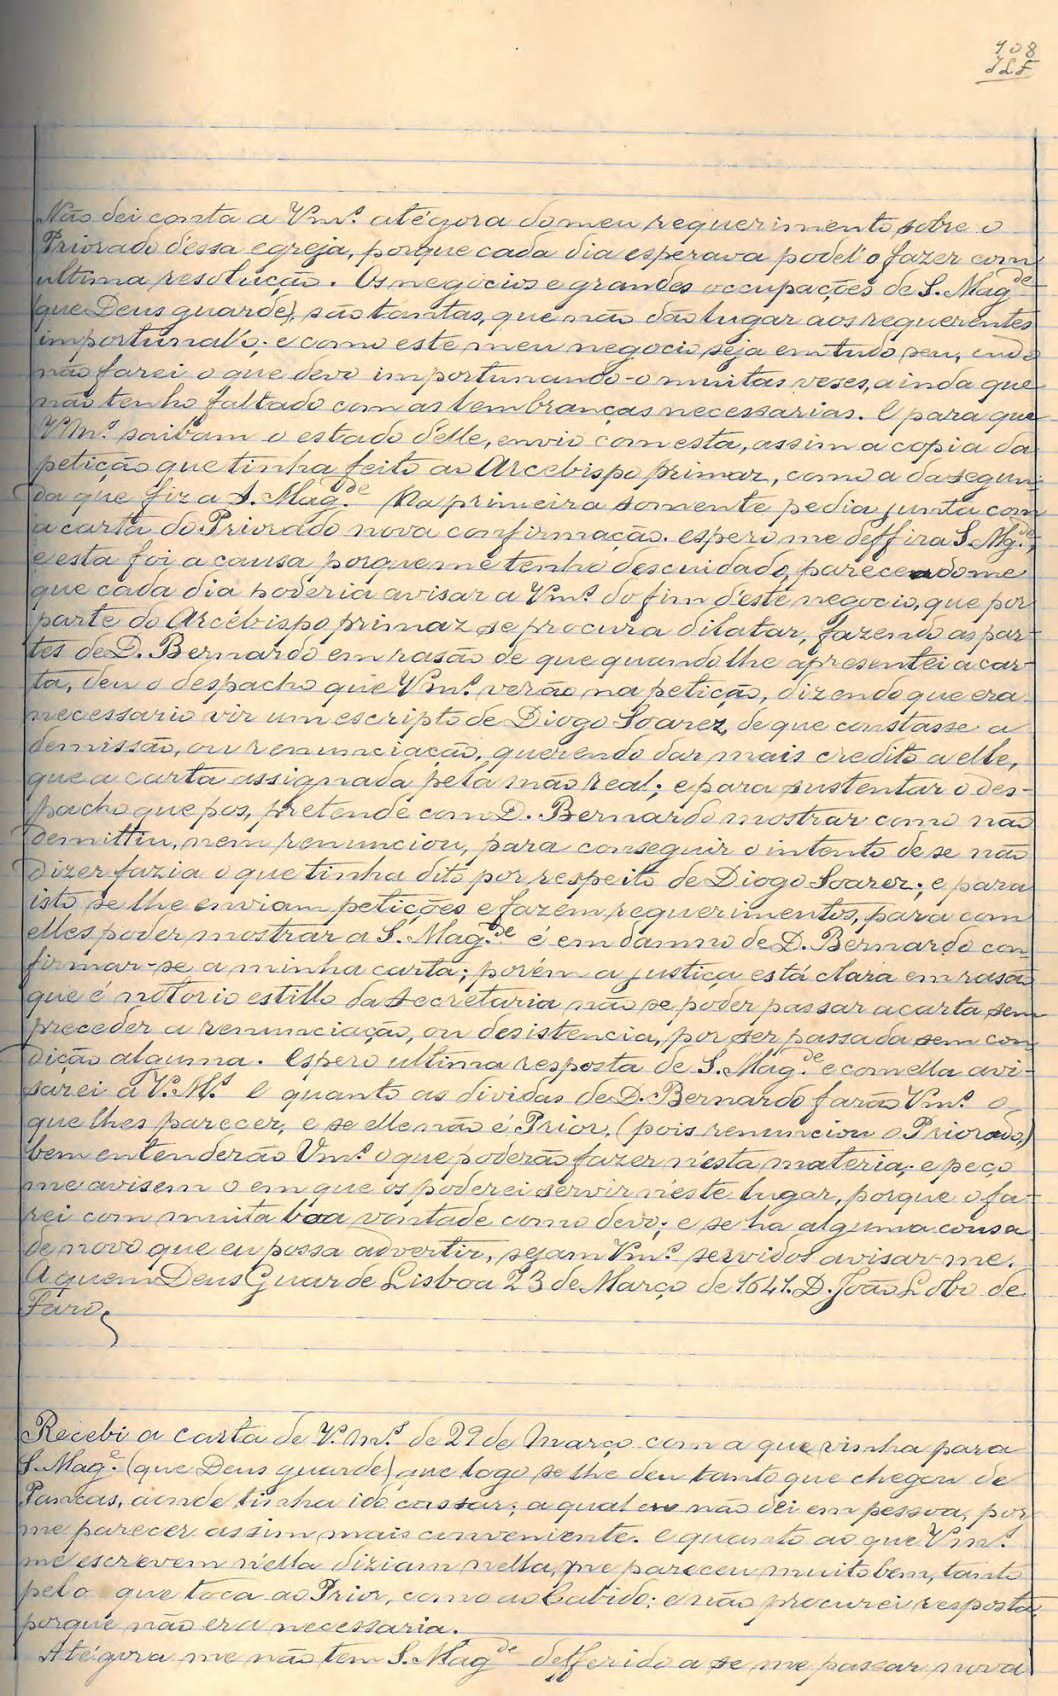 408
JLF
Não dei conta a Vm.s atégora do meu requerimento sobre o
Priorado d'essa egreja, porque cada dia esperava podel'o fazer com
ultima resolução. Os negocios e grandes occupações de S. Mag.de
(que Deus guarde), são tantas, que não dão lugar aos requerentes
importunal'o; e como este meu negocio seja em tudo seu, cude
não farei o que devo importunando-o muitas veses, ainda que
não tenho faltado com as lembranças necessarias. E para que
VM.s saibam o estado d'elle, envio com esta, assim a copia da
petição que tinha feito ao Arcebispo primaz, como a da segun-
da que fiz a S. Mag.de Na primeira somente pedia junta com
a carta do Priorado nova confirmação. espero me deffira S. Mg.de,
e esta foi a causa porque me tenho descuidado, parecendo me
que cada dia poderia avisar a Vm.s do fim d'este negocio, que por
parte do Arcebispo primaz se procura dilatar, fazendo as par-
tes de D. Bernardo em rasão de que quando lhe apresentei a car-
ta, deu o despacho que Vm.s verão na petição, dizendo que era
necessario vir um escripto de Diogo Soarez, de que constasse a
demissão, ou renunciação, querendo dar mais credito a elle,
que a carta assignada pela mão real; e para sustentar o des-
pacho que pos, pretende com D. Bernardo mostrar como não
demittiu, nem renunciou, para conseguir o intento de se não
dizer fazia o que tinha dito por respeito de Diogo Soarez; e para
isto se lhe enviam petições e fazem requerimentos, para com
elles poder mostrar a S. Mag.de é em damno de D. Bernardo con
firmar-se a minha carta; porém a justiça está clara em rasão
que é notorio estillo da secretaria não se poder passar a carta sem
preceder a renunciação, ou desistencia, por ser passada sem con
dição alguma. Espero ultima resposta de S. Mag.de e com ella avi-
sarei a V.M.s E quanto as dividas de D. Bernardo farão Vm.s o
que lhes parecer, e se elle não é Prior, (pois renunciou o Priorado,)
bem entenderão Vm.s o que poderão fazer n'esta materia; e peço
me avisem o em que os poderei servir n'este lugar, porque o fa-
rei com muita boa vontade como devo; e se ha alguma cousa
de novo que eu possa advertir, sejam Vm.s servidos avisar-me.
A quem Deus Guarde Lisboa 23 de Março de 1641. D. João Lobo de
Faro,
Recebi a carta de V.m.s de 29 de Março com a que vinha para
S. Mag.e (que Deus guarde) que logo se lhe deu tanto que chegou de
Pancas, aonde tinha ido cassar; a qual eu não dei em pessoa, por
me parecer assim mais conveniente. e quanto ao que Vm.s
me escrevem n'ella diziam nella, me pareceu muito bem, tanto
pelo que toca ao Prior, como ao Cabido; e não procurei resposta
porque não era necessaria.
Atégora me não tem S. Mag.de defferido a se me passar nova